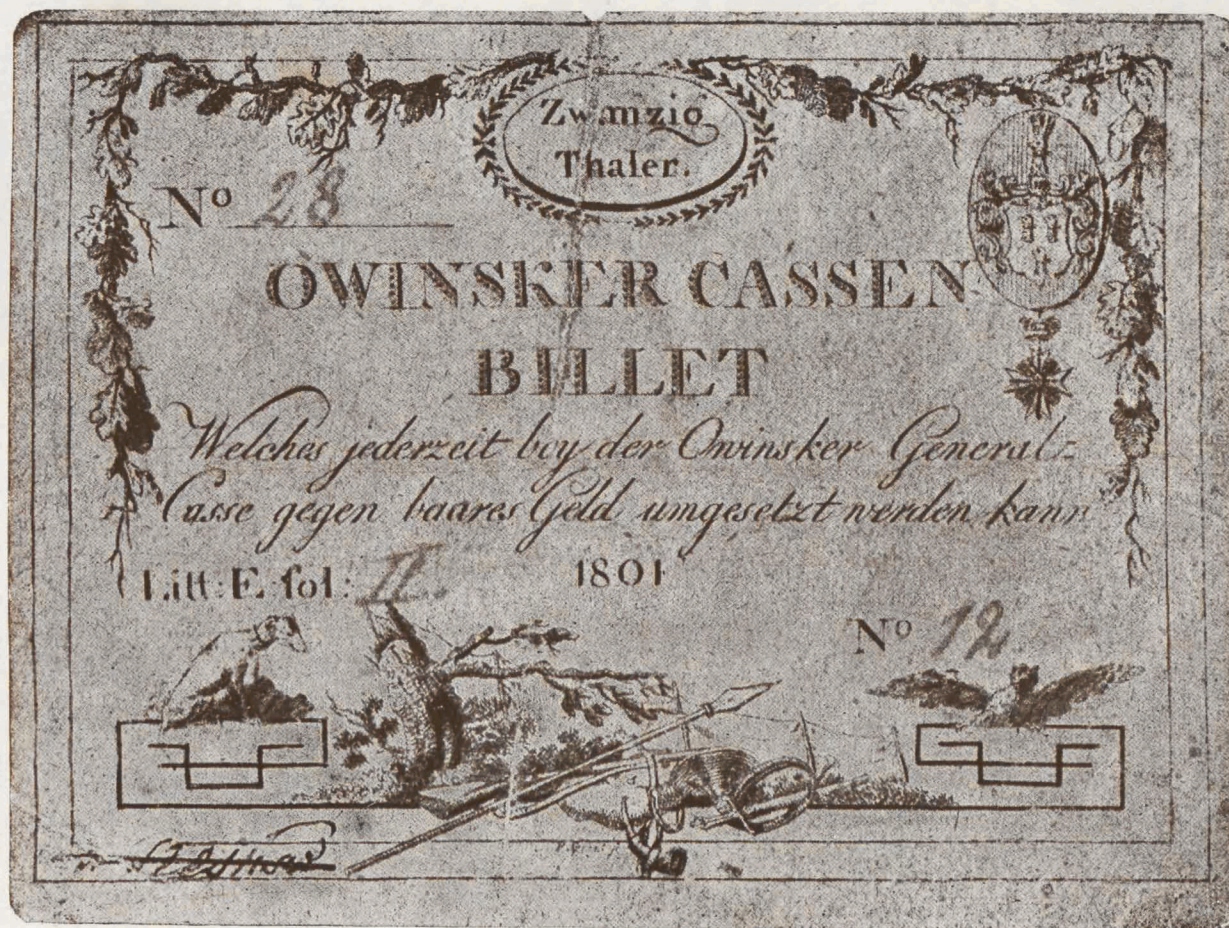 Zwanzig
Thaler.
No 28
OWINSKER CASSEN
BILLET
Welches jederzeit bey der Owinsker General-
Casse gegen baares Geld umgesetzt werden kann
Litt: E. fol: 11. 1801
No 12